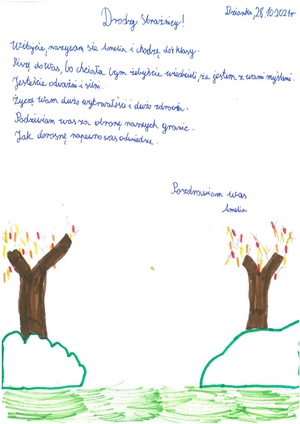 Drodzy Strażnicy!
28.10.2021r
Witajcie, nazywam się Amelia i chodzę do klasy.
Piszę do Was, bo chciała bym żebyście wiedzieli, że jestem z wami myślami.
Jesteście odważni i silni.
Życzę Wam dużo wytrwałości i dużo zdrowia.
Podziwiam was za obronę naszych granic.
Jak dorosnę napewno was odwiedzę.
Pozdrawiam was
Amelia